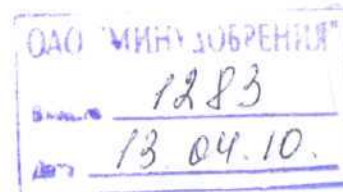 ОАО "МИНУДОБРЕНИЯ"
1283
13.04.10.